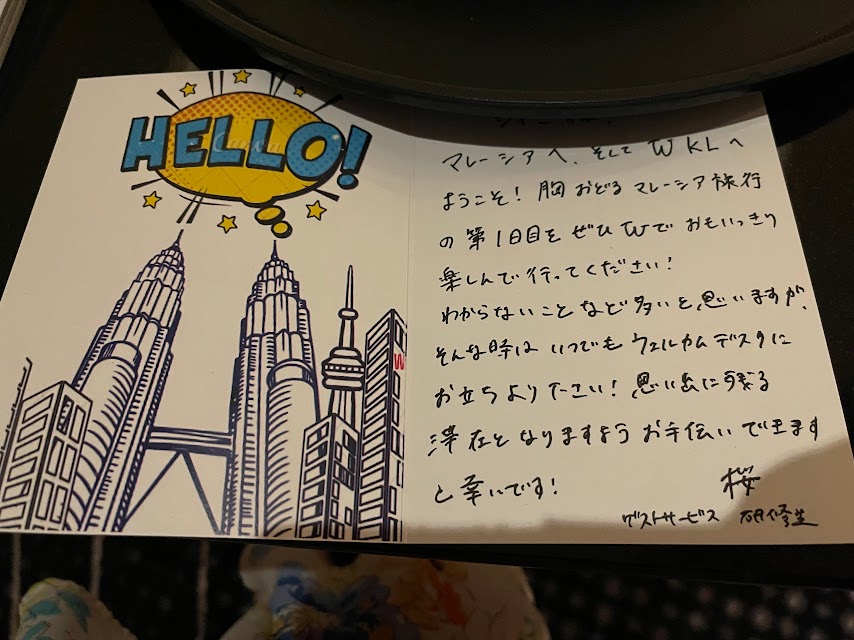 HELLO!
W
マレーシアへ、そして W KLへ
ようこそ！ 胸おどるマレーシア旅行
の第1日目をぜひWでおもいっきり
楽しんで行ってください！
わからないことなど多いと思いますが、
そんな時はいつでもウェルカムデスクに
お立ちより下さい！ 思い出に残る
滞在となりますようお手伝いできます
と幸いです！
桜
ゲストサービス 研修生